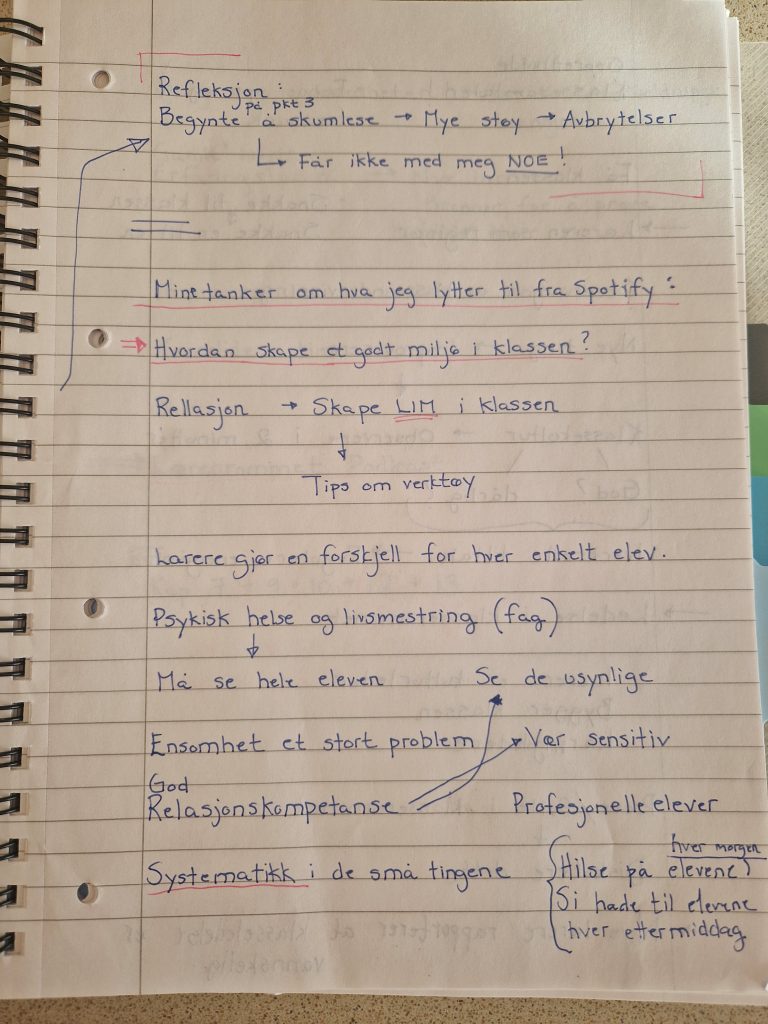 Refleksjon:
på pkt 3
Begynte å skumlese → Mye støy → Avbrytelser
↳ Får ikke med meg NOE!
Mine tanker om hva jeg lytter til fra Spotify:
⇒ Hvordan skape et godt miljø i klassen?
Rellasjon → Skape LIM i klassen
↓
Tips om verktøy
Lærere gjør en forskjell for hver enkelt elev.
Psykisk helse og livsmestring (fag)
↓
Må se hele eleven Se de usynlige
Ensomhet et stort problem Vær sensitiv
God
Relasjonskompetanse Profesjonelle elever
hver morgen
Systematikk i de små tingene Hilse på elevene
Si hade til elevene
hver ettermiddag